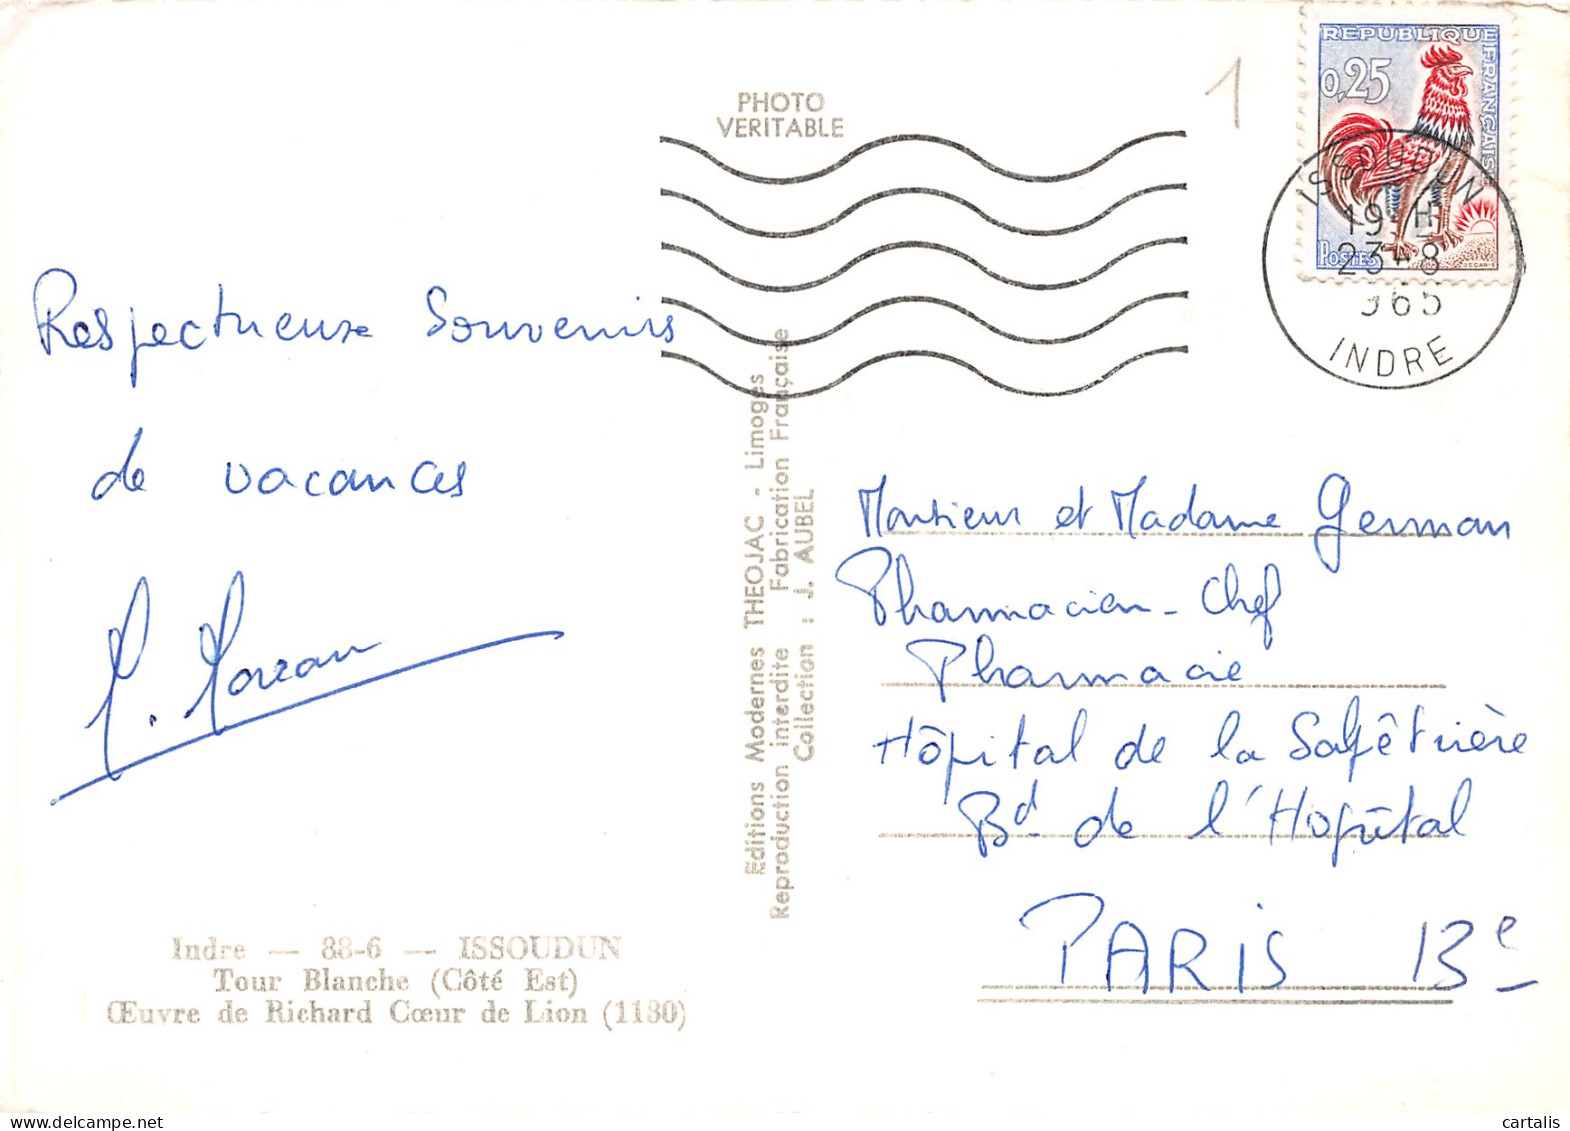 PHOTO
VERITABLE
1
REPUBLIQUE
FRANÇAISE
0,25
POSTES
DECARIS
ISSOUDUN
19 H
23-8
965
INDRE
Respectueux Souvenirs
de vacances
Editions Modernes THEOJAC - Limoges
Reproduction interdite Fabrication Française
Collection : J. AUBEL
Indre — 88-6 — ISSOUDUN
Tour Blanche (Côté Est)
Œuvre de Richard Cœur de Lion (1180)
Monsieur et Madame German
Pharmacien-Chef
Pharmacie
Hôpital de la Salpêtrière
Bd de l'Hôpital
PARIS 13e
cartalis